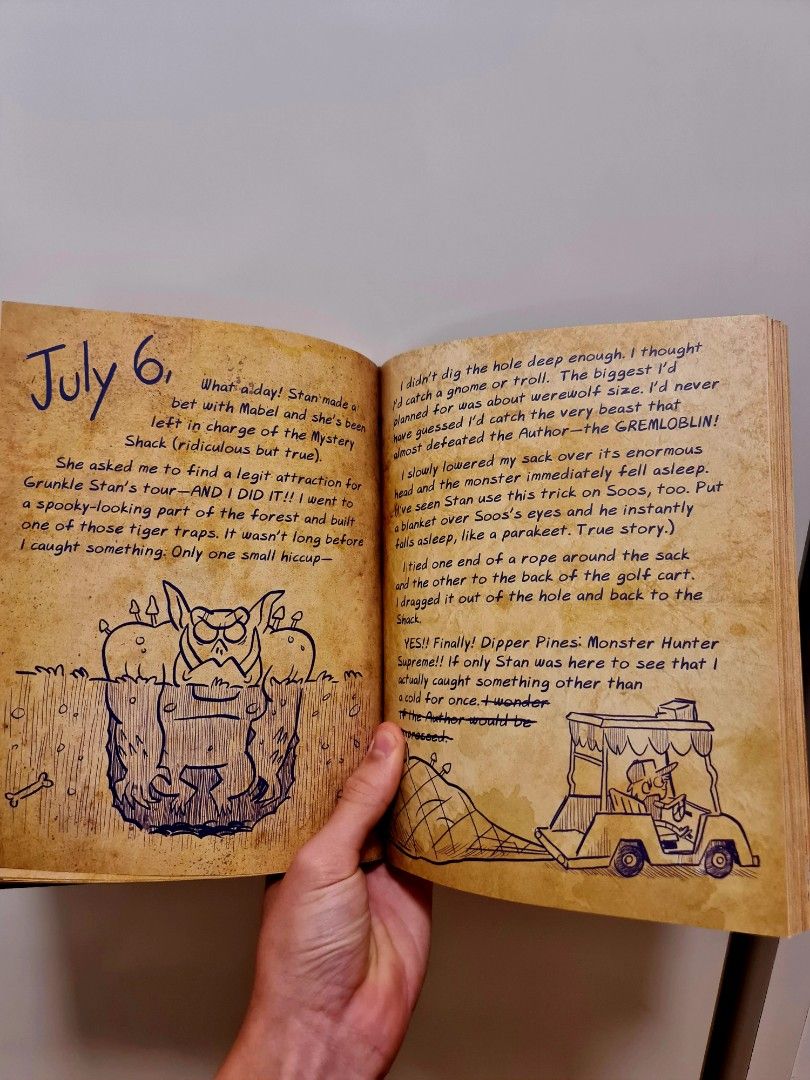 July 6,
What a day! Stan made a
bet with Mabel and she's been
left in charge of the Mystery
Shack (ridiculous but true).
She asked me to find a legit attraction for
Grunkle Stan's tour—AND I DID IT!! I went to
a spooky-looking part of the forest and built
one of those tiger traps. It wasn't long before
I caught something. Only one small hiccup—
I didn't dig the hole deep enough. I thought
I'd catch a gnome or troll. The biggest I'd
planned for was about werewolf size. I'd never
have guessed I'd catch the very beast that
almost defeated the Author—the GREMLOBLIN!
I slowly lowered my sack over its enormous
head and the monster immediately fell asleep.
(I've seen Stan use this trick on Soos, too. Put
a blanket over Soos's eyes and he instantly
falls asleep, like a parakeet. True story.)
I tied one end of a rope around the sack
and the other to the back of the golf cart.
I dragged it out of the hole and back to the
Shack.
YES!! Finally! Dipper Pines: Monster Hunter
Supreme!! If only Stan was here to see that I
actually caught something other than
a cold for once. I wonder
if the Author would be
impressed.